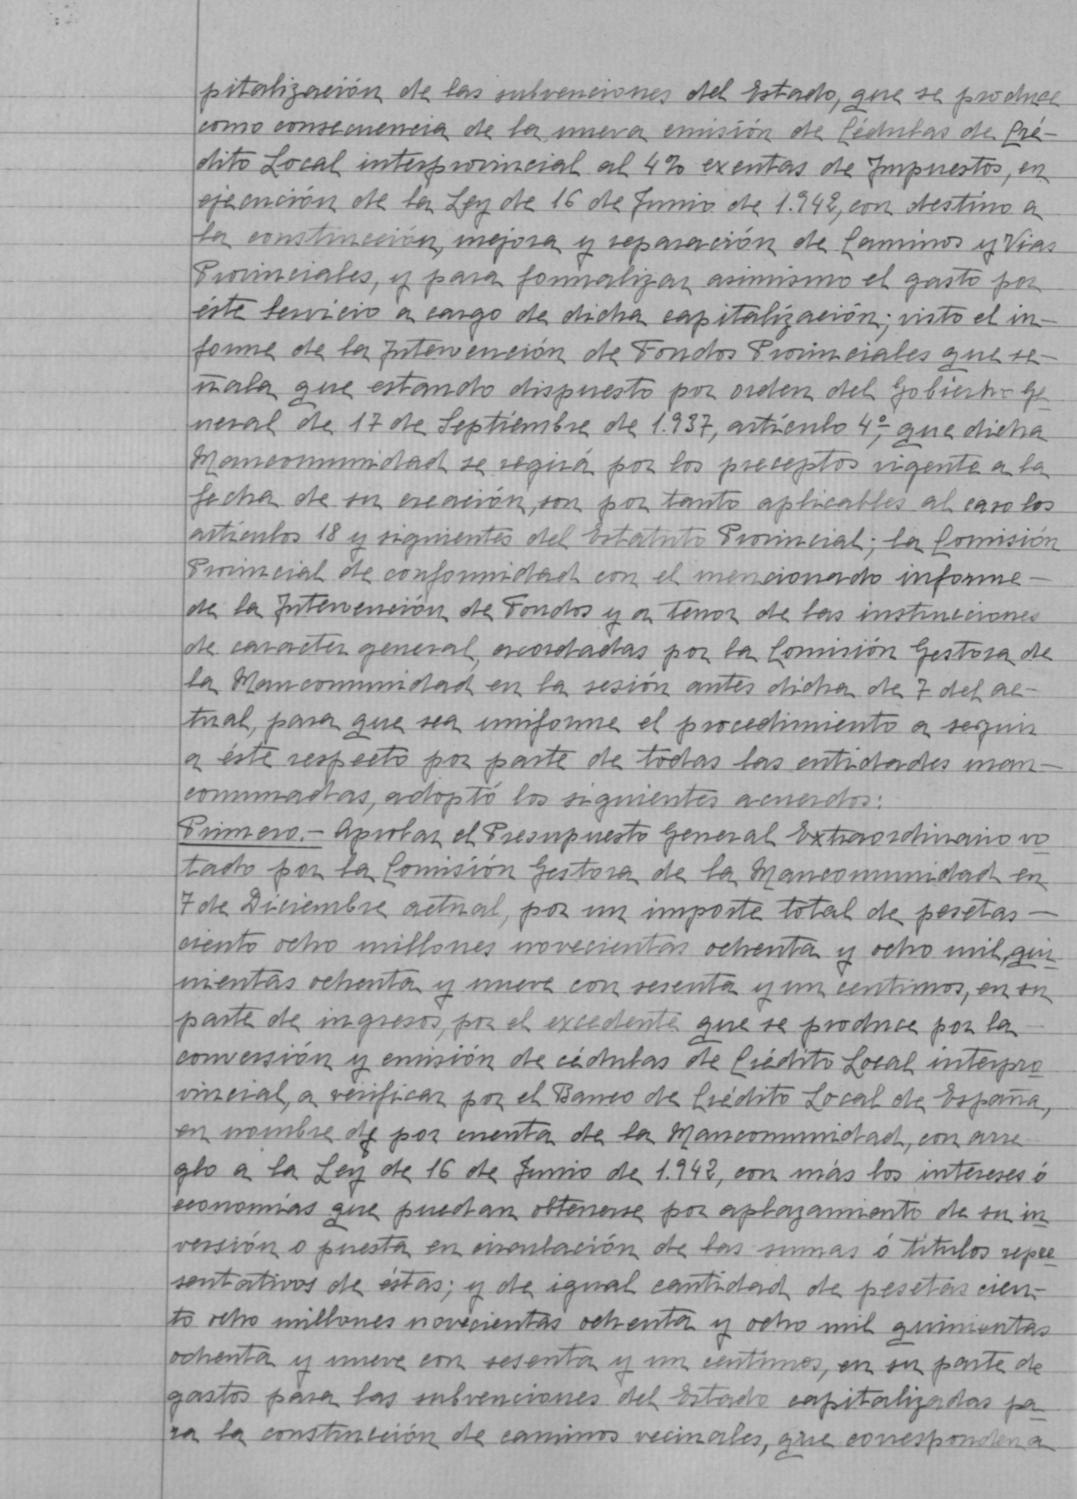 pitalización de las subvenciones del Estado, que se produce
como consecuencia de la nueva emisión de Cédulas de Cré-
dito Local interprovincial al 4% exentas de Impuestos, en
ejecución de la Ley de 16 de Junio de 1.942, con destino a
la construcción, mejora y reparación de Caminos y Vias
Provinciales, y para formalizar asimismo el gasto por
éste servicio a cargo de dicha capitalización; visto el in-
forme de la Intervención de Fondos Provinciales que se-
ñala que estando dispuesto por orden del Gobierno Ge
neral de 17 de Septiembre de 1.937, artículo 4º, que dicha
Mancomunidad se regirá por los preceptos vigente a la
fecha de su creación, son por tanto aplicables al caso los
artículos 18 y siguientes del Estatuto Provincial; la Comisión
Provincial de conformidad con el mencionado informe -
de la Intervención de Fondos y a tenor de las instrucciones
de caracter general, acordadas por la Comisión Gestora de
la Mancomunidad en la sesión antes dicha de 7 del ac-
tual, para que sea uniforme el procedimiento a seguir
a éste respecto por parte de todas las entidades man-
comunadas, adoptó los siguientes acuerdos:
Primero.- Aprobar el Presupuesto General Extraordinario vo
tado por la Comisión Gestora de la Mancomunidad en
7 de Diciembre actual, por un importe total de pesetas -
ciento ocho millones novecientas ochenta y ocho mil, qui-
nientas ochenta y nueve con sesenta y un centimos, en su
parte de ingresos, por el excedente que se produce por la
conversión y emisión de cédulas de Crédito Local interpro
vincial, a verificar por el Banco de Crédito Local de España,
en nombre dy por cuenta de la Mancomunidad, con arre
glo a la Ley de 16 de Junio de 1.942, con más los intereses ó
economías que puedan obtenerse por aplazamiento de su in
versión o puesta en circulación de las sumas ó títulos repre
sentativos de éstas; y de igual cantidad de pesetas cien-
to ocho millones novecientas ochenta y ocho mil quinientas
ochenta y nueve con sesenta y un centimos, en su parte de
gastos para las subvenciones del Estado capitalizadas pa
ra la construcción de caminos vecinales, que corresponden a